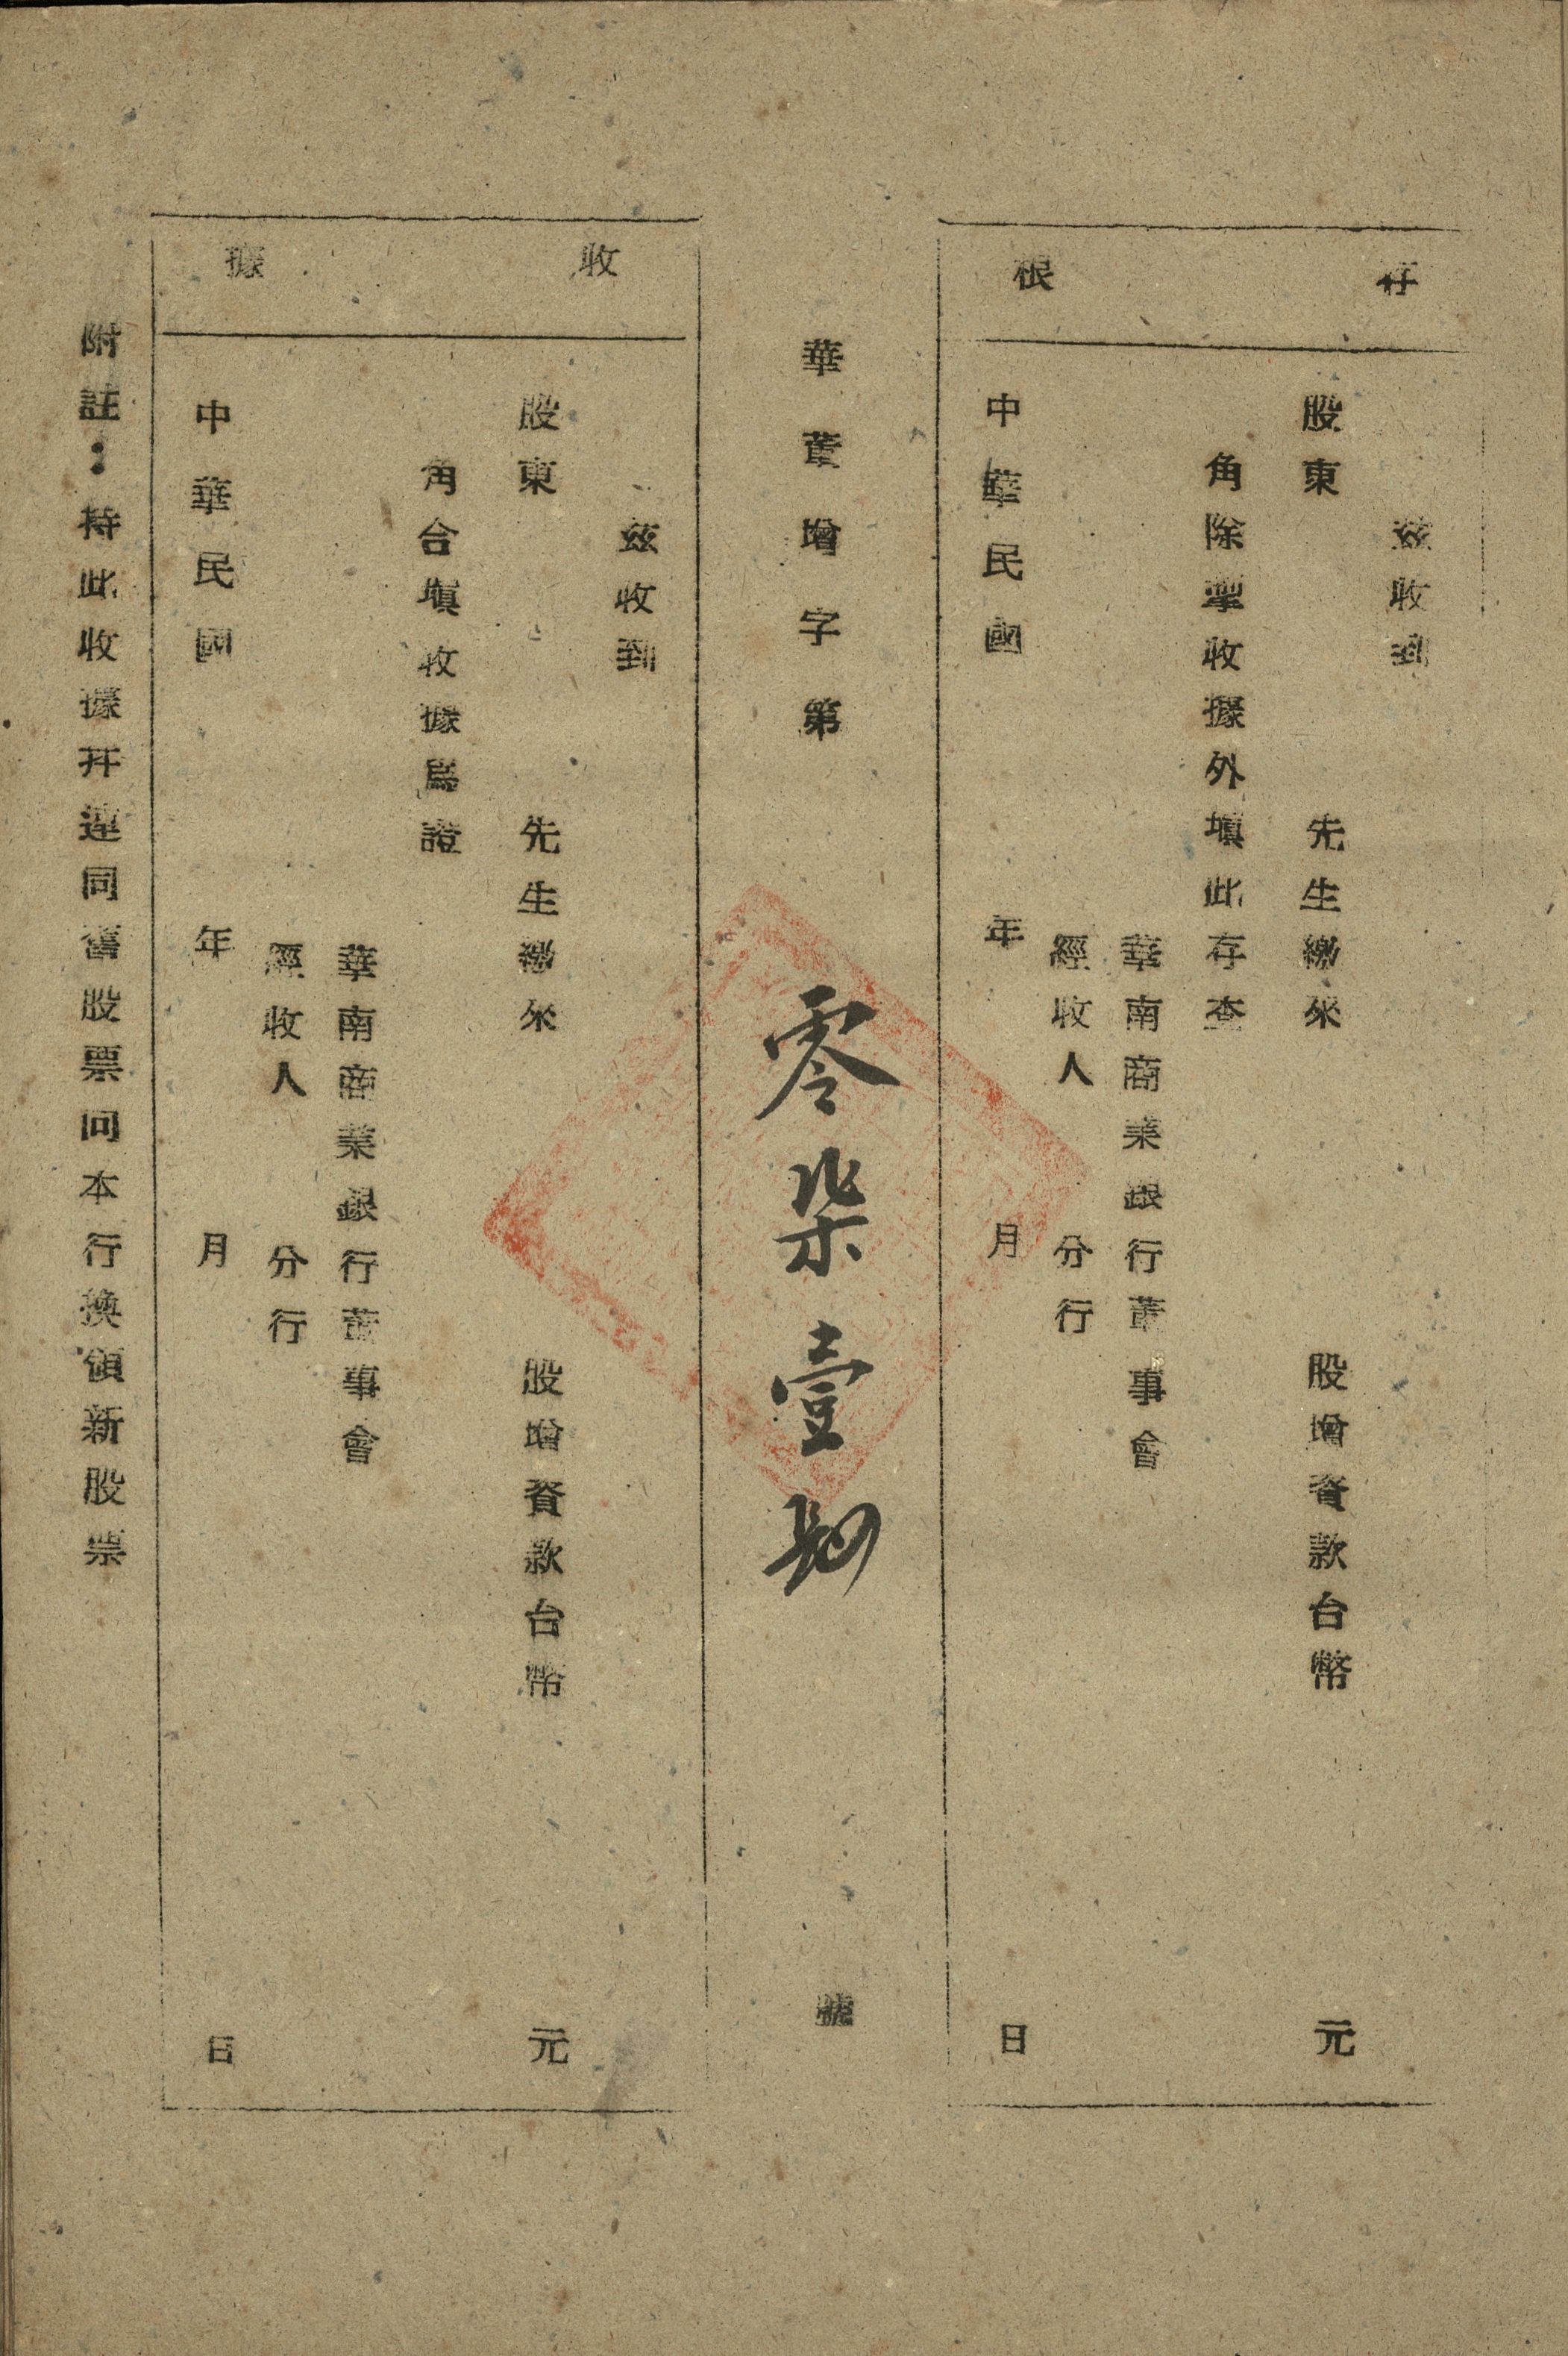 存根
茲收到
股東 先生繳來 股增資款台幣 元
角除掣收據外填此存查
華南商業銀行董事會
經收人 分行
中華民國 年 月 日
華董增字第 零柒壹 號
收據
茲收到
股東 先生繳來 股增資款台幣 元
角合填收據爲證
華南商業銀行董事會
經收人 分行
中華民國 年 月 日
附註：持此收據幷連同舊股票向本行換領新股票